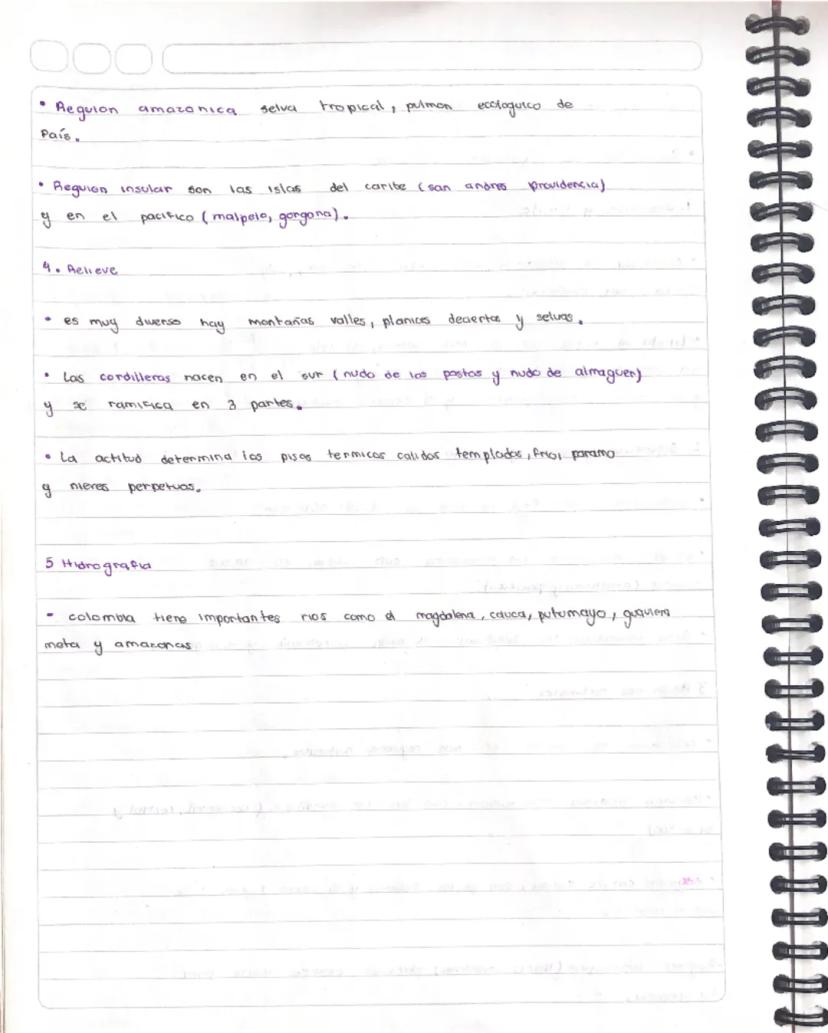 • Reguion amazonica selva tropical, pulmon ecologuico de
País.
• Reguion insular son las islas del caribe (san andres providencia)
y en el pacifico (malpelo, gorgona).
4. Relieve
• es muy diverso hay montañas valles, planices deciertos y selvas.
• Las cordilleras nacen en el sur (nudo de los pastos y nudo de almaguer)
y se ramifica en 3 partes.
• La actitud determina los pisos termicos calidos templados, frio, paramo
y nieves perpetuas.
5 Hidrografia
- colombia tiene importantes rios como el magdalena, cauca, putumayo,
meta y amazonas